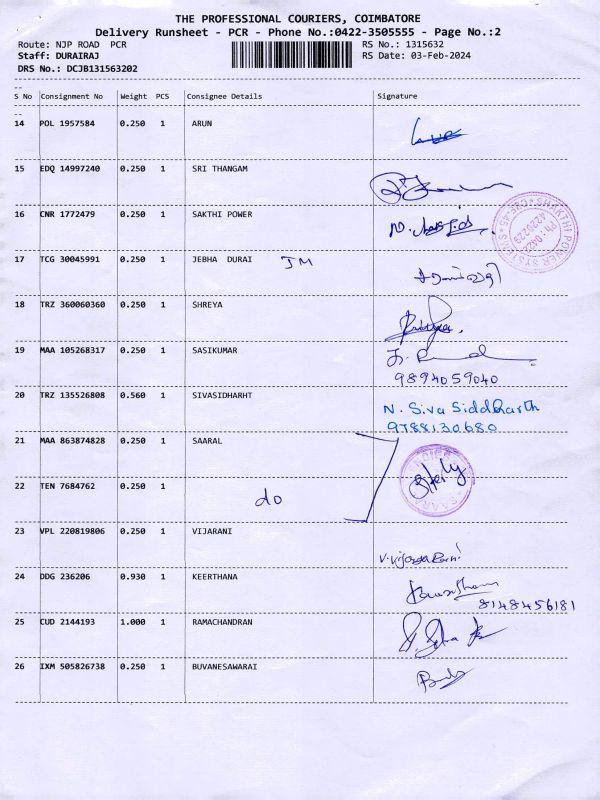 THE PROFESSIONAL COURIERS, COIMBATORE
Delivery Runsheet - PCR - Phone No.:0422-3505555 - Page No.:2
Route: NJP ROAD PCR RS No.: 1315632
Staff: DURAIRAJ RS Date: 03-Feb-2024
DRS No.: DCJB131563202
S No Consignment No Weight PCS Consignee Details Signature
14 POL 1957584 0.250 1 ARUN
15 EDQ 14997240 0.250 1 SRI THANGAM
16 CNR 1772479 0.250 1 SAKTHI POWER
SHAKTHI POWER SYSTEMS
17 TCG 30045991 0.250 1 JEBHA DURAI JM
18 TRZ 360060360 0.250 1 SHREYA
19 MAA 105268317 0.250 1 SASIKUMAR
9894059040
20 TRZ 135526808 0.560 1 SIVASIDHARHT N. Siva Siddharth
9788130680
21 MAA 863874828 0.250 1 SAARAL
22 TEN 7684762 0.250 1 do
23 VPL 220819806 0.250 1 VIJARANI
24 DDG 236206 0.930 1 KEERTHANA
8148456181
25 CUD 2144193 1.000 1 RAMACHANDRAN
26 IXM 505826738 0.250 1 BUVANESAWARAI